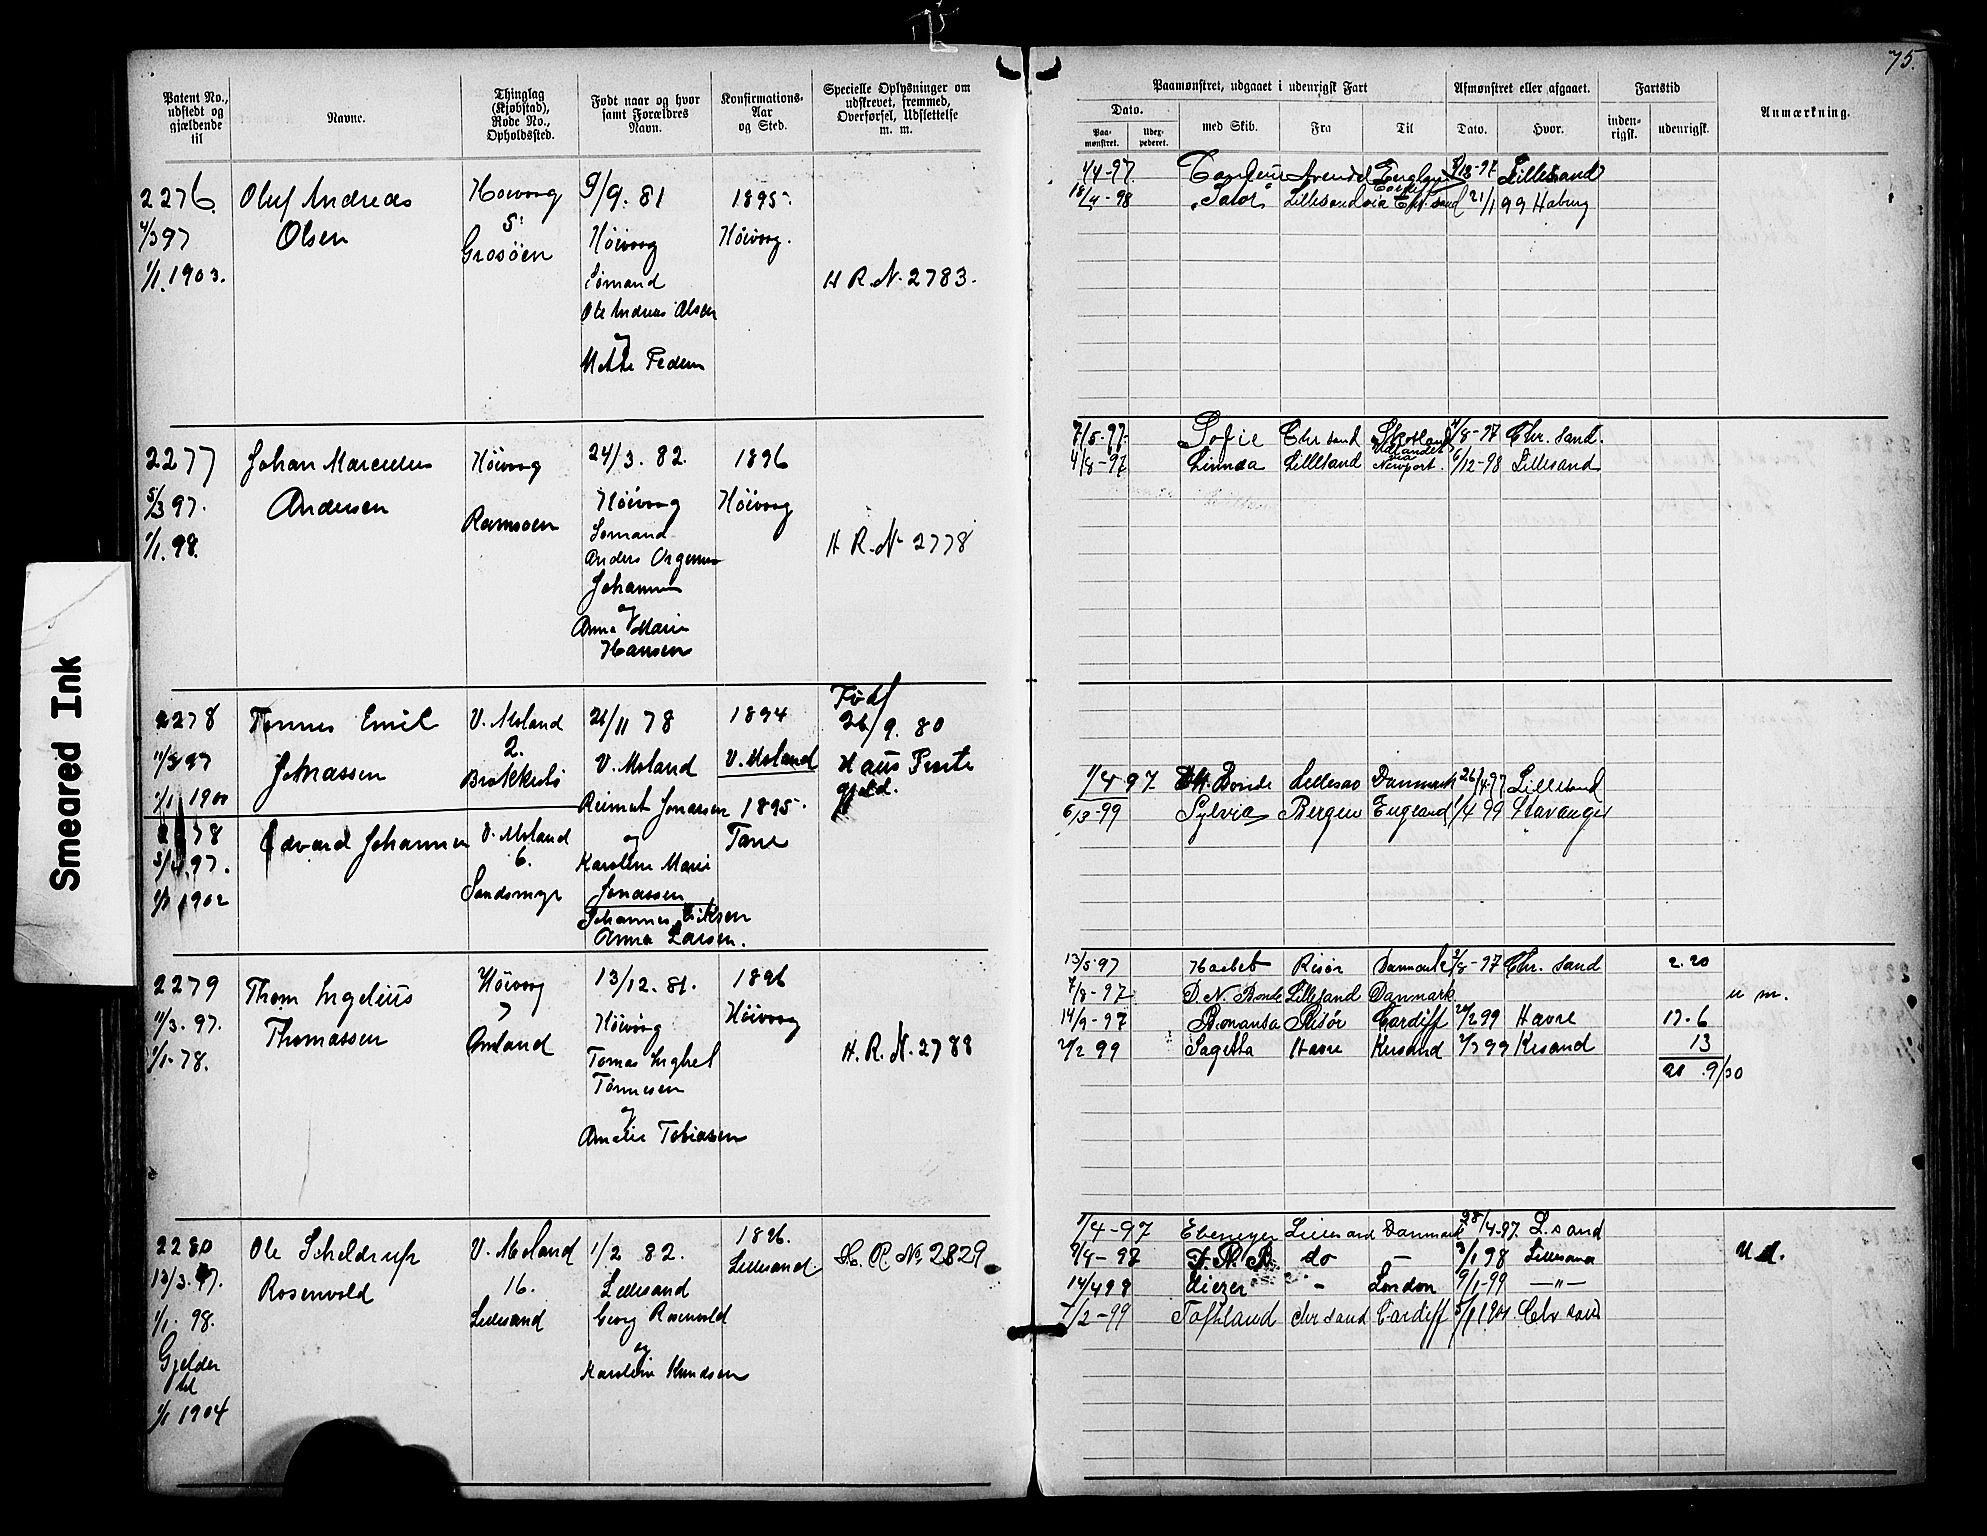 75.
Patent No., udstedt og gjældende til
Navne.
Thinglag (Kjøbstad), Rode No., Opholdssted.
Født naar og hvor samt Forældres Navn.
Konfirmations-Aar og Sted.
Specielle Oplysninger om udskrevet, fremmed, Overførsel, Udslettelse m. m.
Paamønstret, udgaaet i udenrigsk Fart
Afmønstret eller afgaaet.
Fartstid
Anmærkning.
Dato.
med Skib.
Fra
Til
Dato.
Hvor.
inden-rigsk.
udenrigsk.
Paa-mønstret.
Udex-pederet.
2276
4/3 97
1/1. 1903.
Oluf Andreas
Olsen
Høivaag
5.
Grosøen
9/9. 81
Høivaag
Sømand
Ole Andreas Olsen
og
Mette Pedersen
1895.
Høivaag.
H R. N. 2783.
1/4-97 Arendal England Lillesand
18/4-98 Lillesand via Chr. sand 21/1 99
2277
5/3 97.
1/1. 98.
Johan Marcelius
Andersen
Høivaag
Ramsøen
24/3. 82.
Høivaag
Sømand
Anders
Johannes
og
Anna Marie
Hansen
1896
Høivaag
H R. N. 2778
7/5-97. Sofie Chr sand Skotland 4/8-97 Chr. sand.
4/8-97 Linnea Lillesand via Newport. 6/12-98 Lillesand
2278
11/3 97
1/1 1900
Tønnes Emil
Jonassen
V. Moland
2.
Brækkestø
26/11 78
V. Moland
Reimert Jonassen
og
Karoline Marie
Jonassen
1894
V. Moland
Født
26/9. 80
Haus Preste
gjeld.
2278
97.
1902
Edvard Johannes
V. Moland
6.
Sandsmyr
Johannes Eriksen
Anna Larsen.
1895.
Tane
1/4 97 Bonde Lillesand Danmark 26/4 97 Lillesand
6/3-99 Sylvia Bergen England 1/4 99 Stavanger
2279
11/3. 97.
1/1-78.
Thom Ingelius
Thomassen
Høivaag
7
Omland
13/12. 81.
Høivåg
Tomas Inghel
Tønnesen
og
Amalie Tobiasen
1896
Høivaag
H. R. N. 2788
13/5 97 Haabet Risør Danmark 3/8-97 Chr. sand 2. 20
7/8-97 D. N. Bonde Lillesand Danmark
u m.
14/9-97 Bonansa Risør Cardiff 20/2 99 Havre 17-6
21/2 99 Sagitta Havre Krsand 4/3 99 Krsand 13
20 9/30
2280
13/3. 97.
1/1. 98.
Gjelder
til
1/1 1904
Ole Scheldrup
Rosenvold
V. Moland
16.
Lillesand
1/2 82.
Lillesand
Georg Rosenvold
og
Karoline Knudsen
1896.
Lillesand
H. R. No. 2829
1/4-97 Ebenezer Lillesand Danmark 28/4-97. L. sand
D. N. B. do — 3/1 98 Lillesand
U. d.
14/4 98 Eliezer - London 9/1-99 —"—
7/2-99 Toftland Chr sand Cardiff 5/1 1901 Chr sand
Smeared Ink